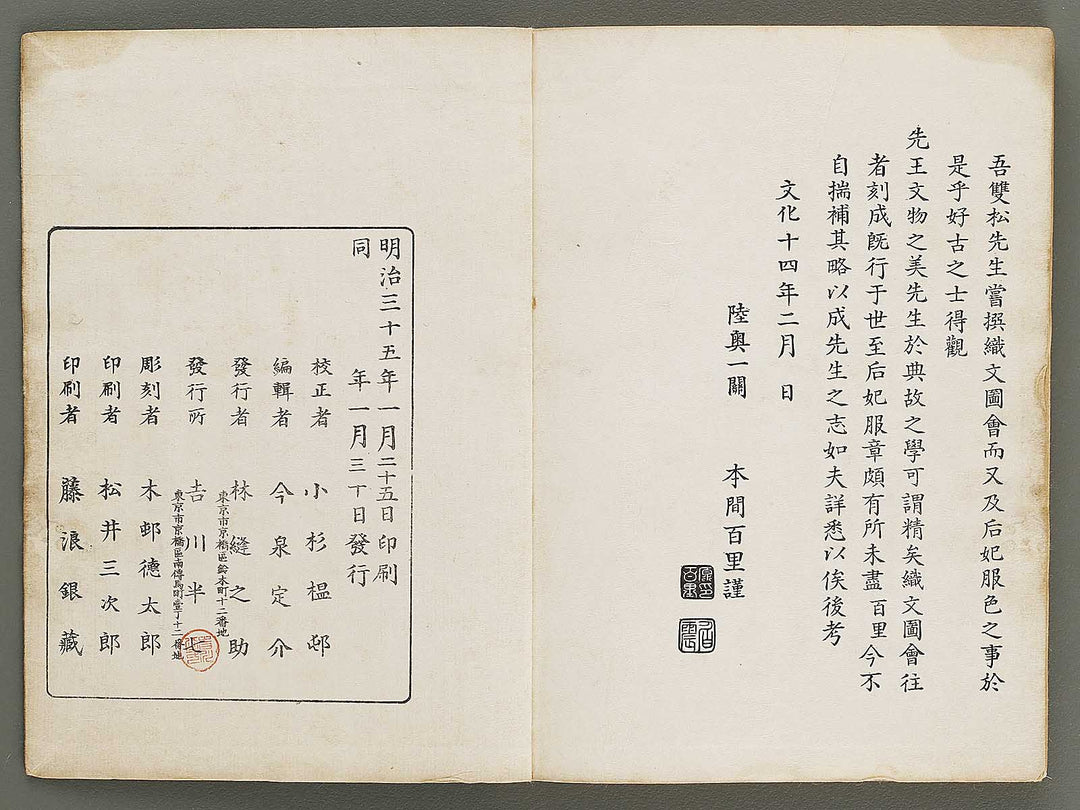 吾雙松先生嘗撰織文圖會而又及后妃服色之事於
是乎好古之士得觀
先王文物之美先生於典故之學可謂精矣織文圖會往
者刻成既行于世至后妃服章頗有所未盡百里今不
自揣補其略以成先生之志如夫詳悉以俟後考
文化十四年二月　日
陸奧一關　本間百里謹
明治三十五年一月二十五日印刷
同　年一月三十日發行
校正者　小杉榲邨
編輯者　今泉定介
東京市京橋區鈴木町十二番地
發行者　林縫之助
東京市京橋區南傳馬町壹丁十二番地
發行所　吉川半七
彫刻者　木邨德太郎
印刷者　松井三次郎
印刷者　藤浪銀藏